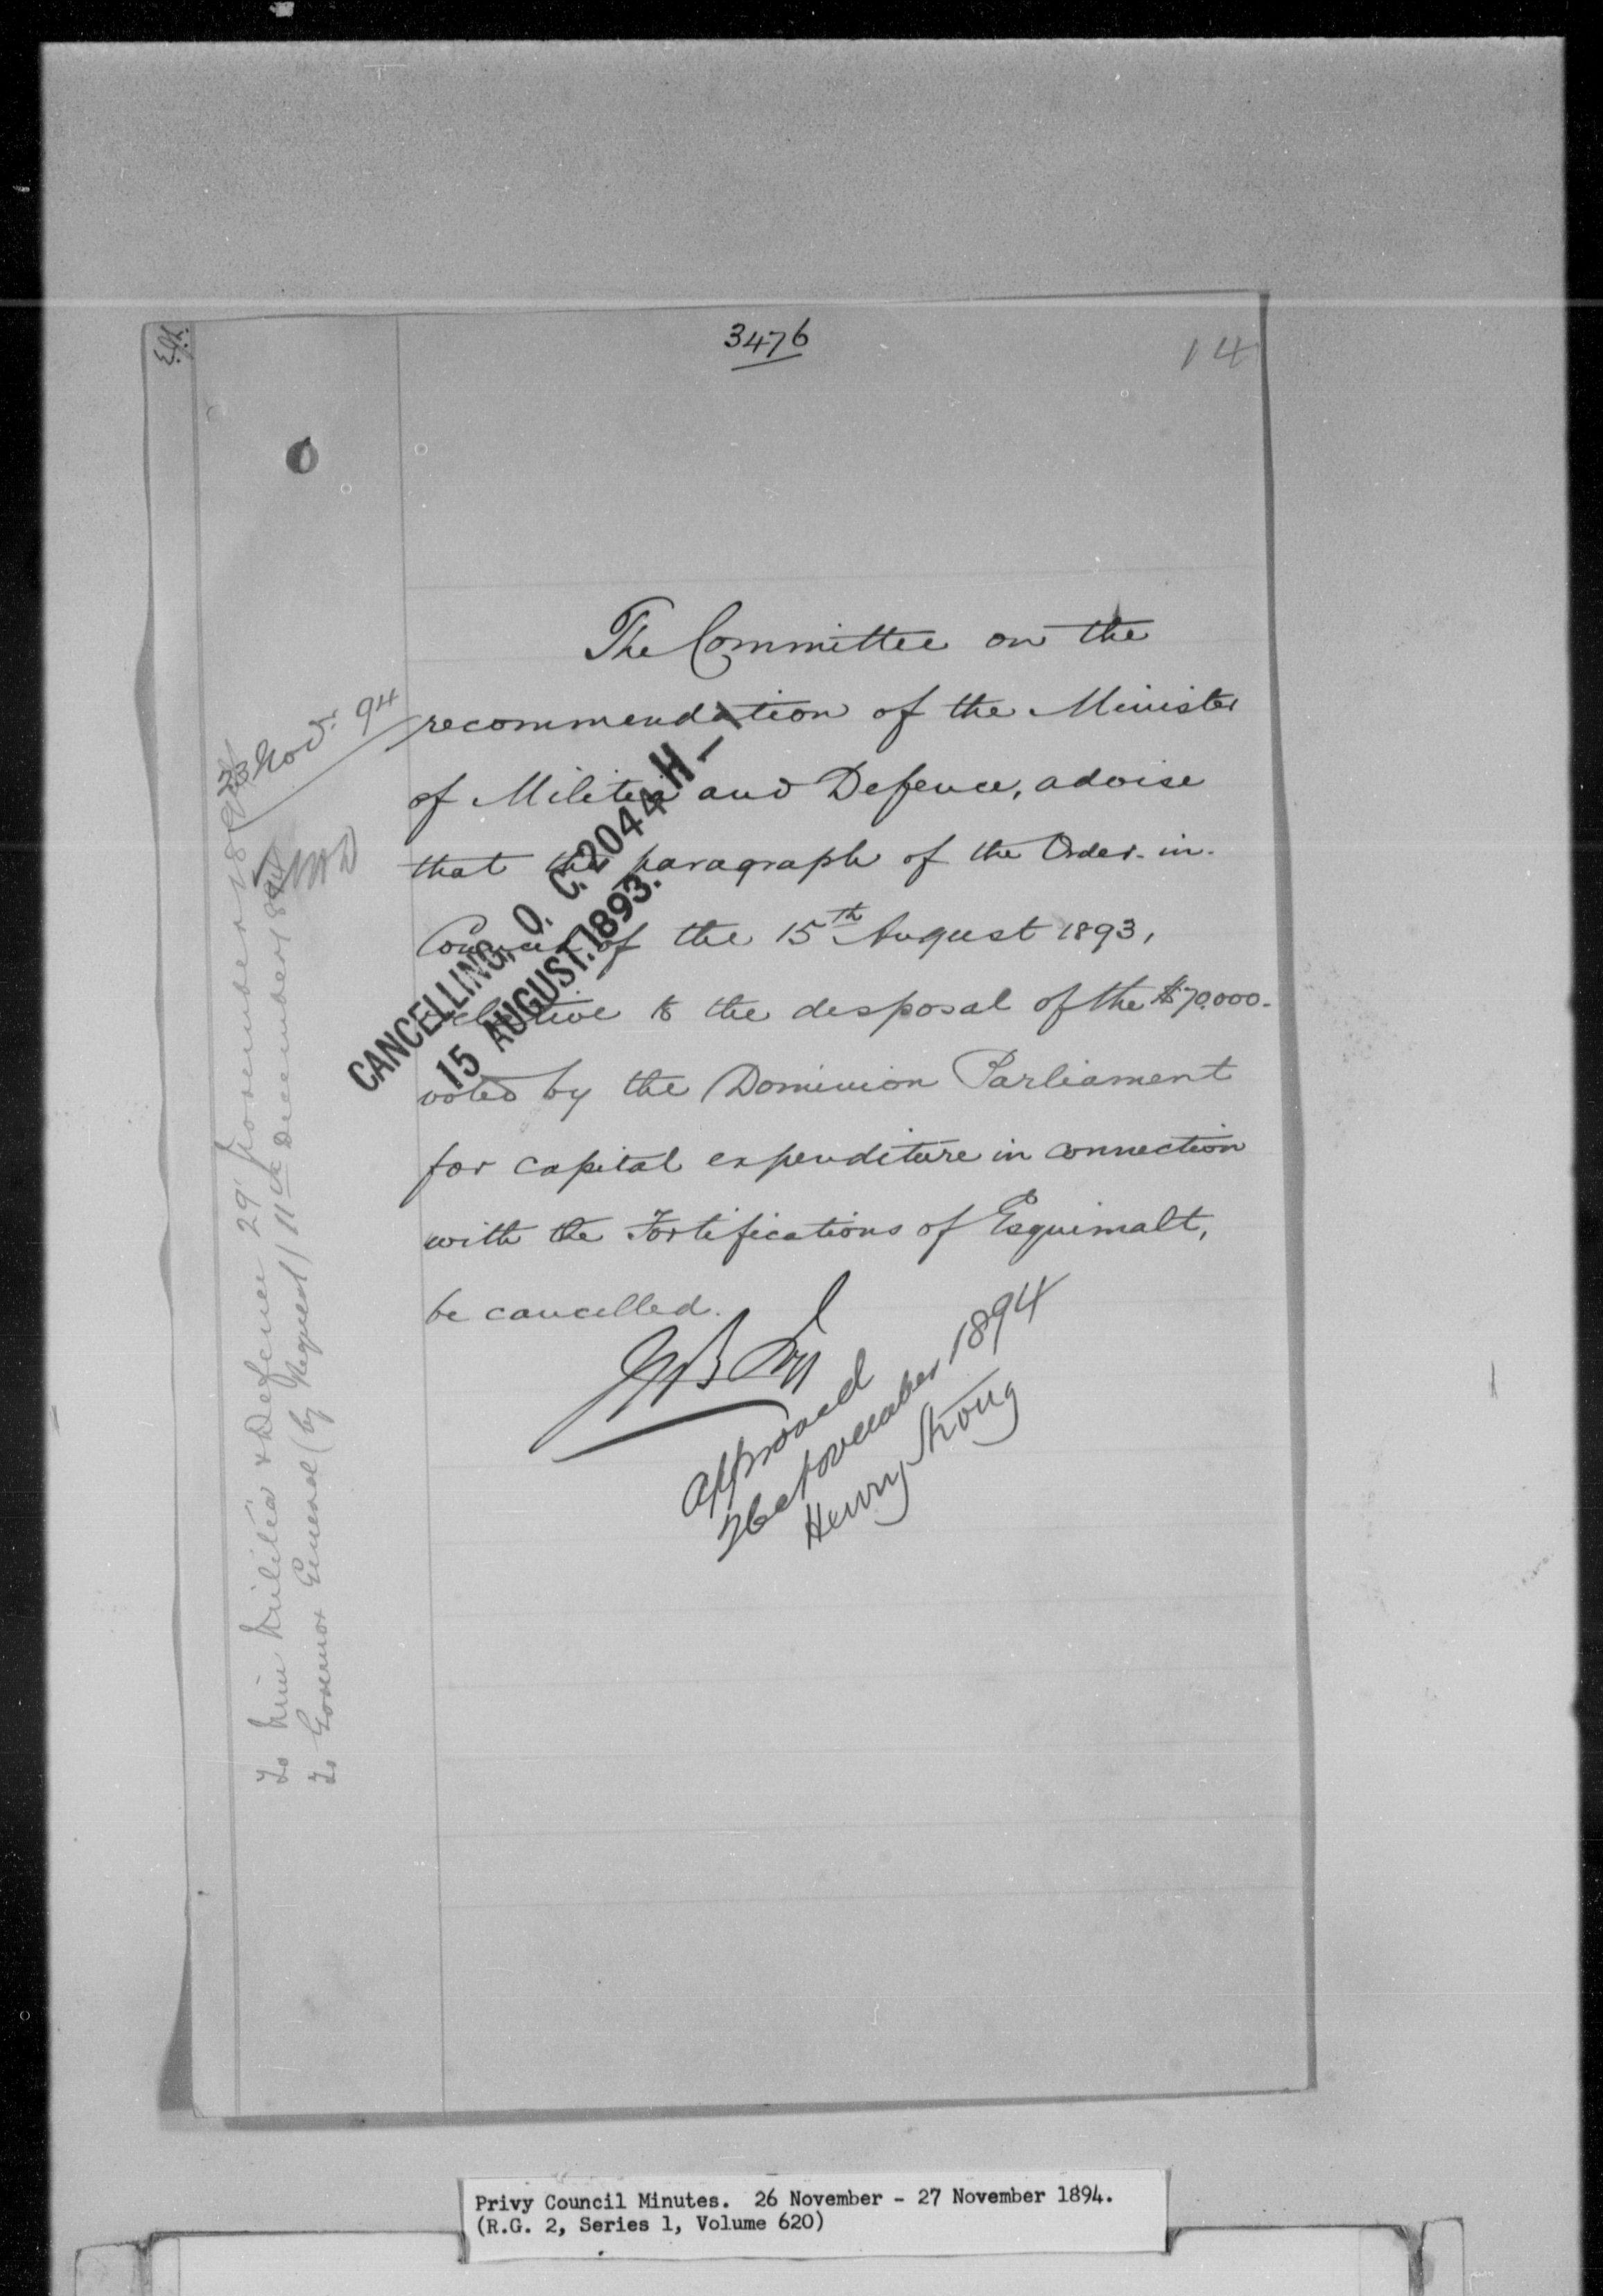 3476
14
The Committee on the
recommendation of the Minister
of Militia and Defence, advise
that the paragraph of the Order-in-
Council of the 15th August 1893,
relative to the disposal of the $70,000.
voted by the Dominion Parliament
for capital expenditure in connection
with the Fortifications of Esquimalt,
be cancelled.
Approved
26 November 1894
Henry Strong
CANCELLING, O. C. 2044 H_1
15 AUGUST. 1893.
23 Nov. 94
To Min Militia & Defence 29' November 1894
To Governor General (by Request) 11th December 1894
Privy Council Minutes. 26 November - 27 November 1894.
(R.G. 2, Series 1, Volume 620)